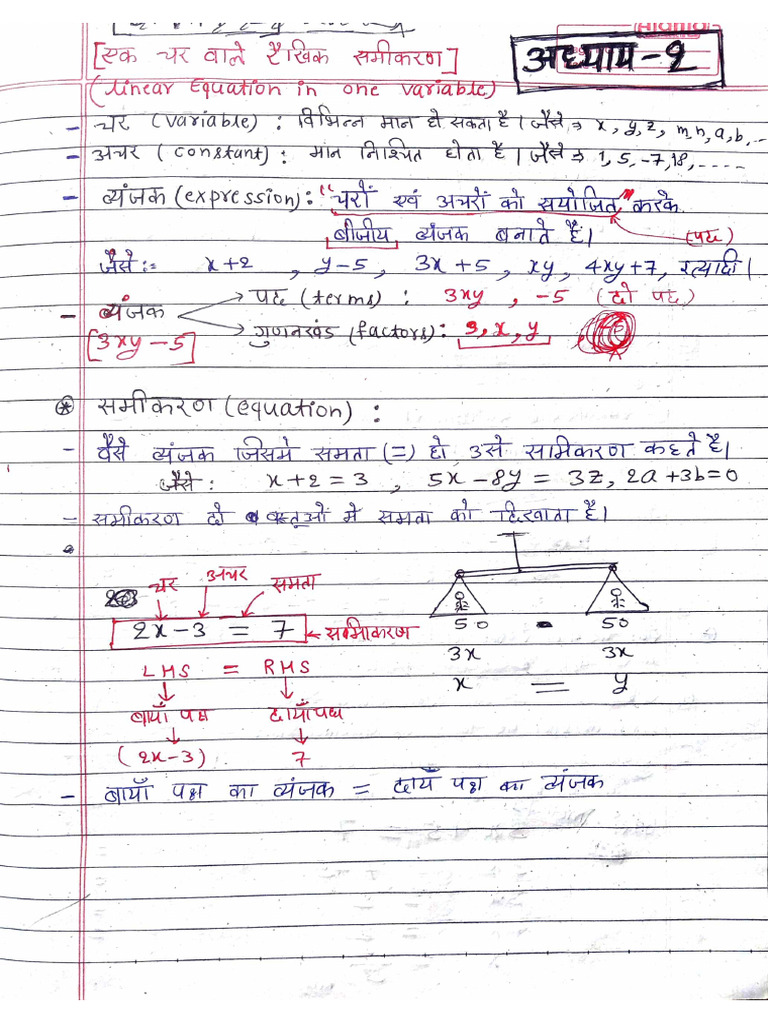 [एक चर वाले रैखिक समीकरण]
अध्याय-2
(Linear Equation in one variable)
- चर (variable) : विभिन्न मान हो सकता है। जैसे ⇒ x, y, z, m, n, a, b, ...
- अचर (constant) : मान निश्चित होता है। जैसे ⇒ 1, 5, -7, 18, .....
- व्यंजक (expression) : "चरों एवं अचरों को सयोजित" करके
बीजीय व्यंजक बनाते है। (पद)
जैसे := x+2 , y-5 , 3x+5 , xy, 4xy+7, इत्यादी।
- व्यंजक → पद (terms) : 3xy , -5 (दो पद)
[3xy-5] → गुणनखंड (factors) : 3, x, y
* समीकरण (equation) :
- वैसे व्यंजक जिसमे समता (=) हो उसे सामिकरण कहते है।
जैसे : x+2=3 , 5x-8y=3z, 2a+3b=0
- समीकरण दो वस्तुओं मे समता को दिखाता है।
चर अचर समता
2x-3 = 7 ← समीकरण
50 - 50
LHS = RHS
3x 3x
x = y
बायाँ पक्ष दायाँ पक्ष
(2x-3) 7
- बायाँ पक्ष का व्यंजक = दायाँ पक्ष का व्यंजक